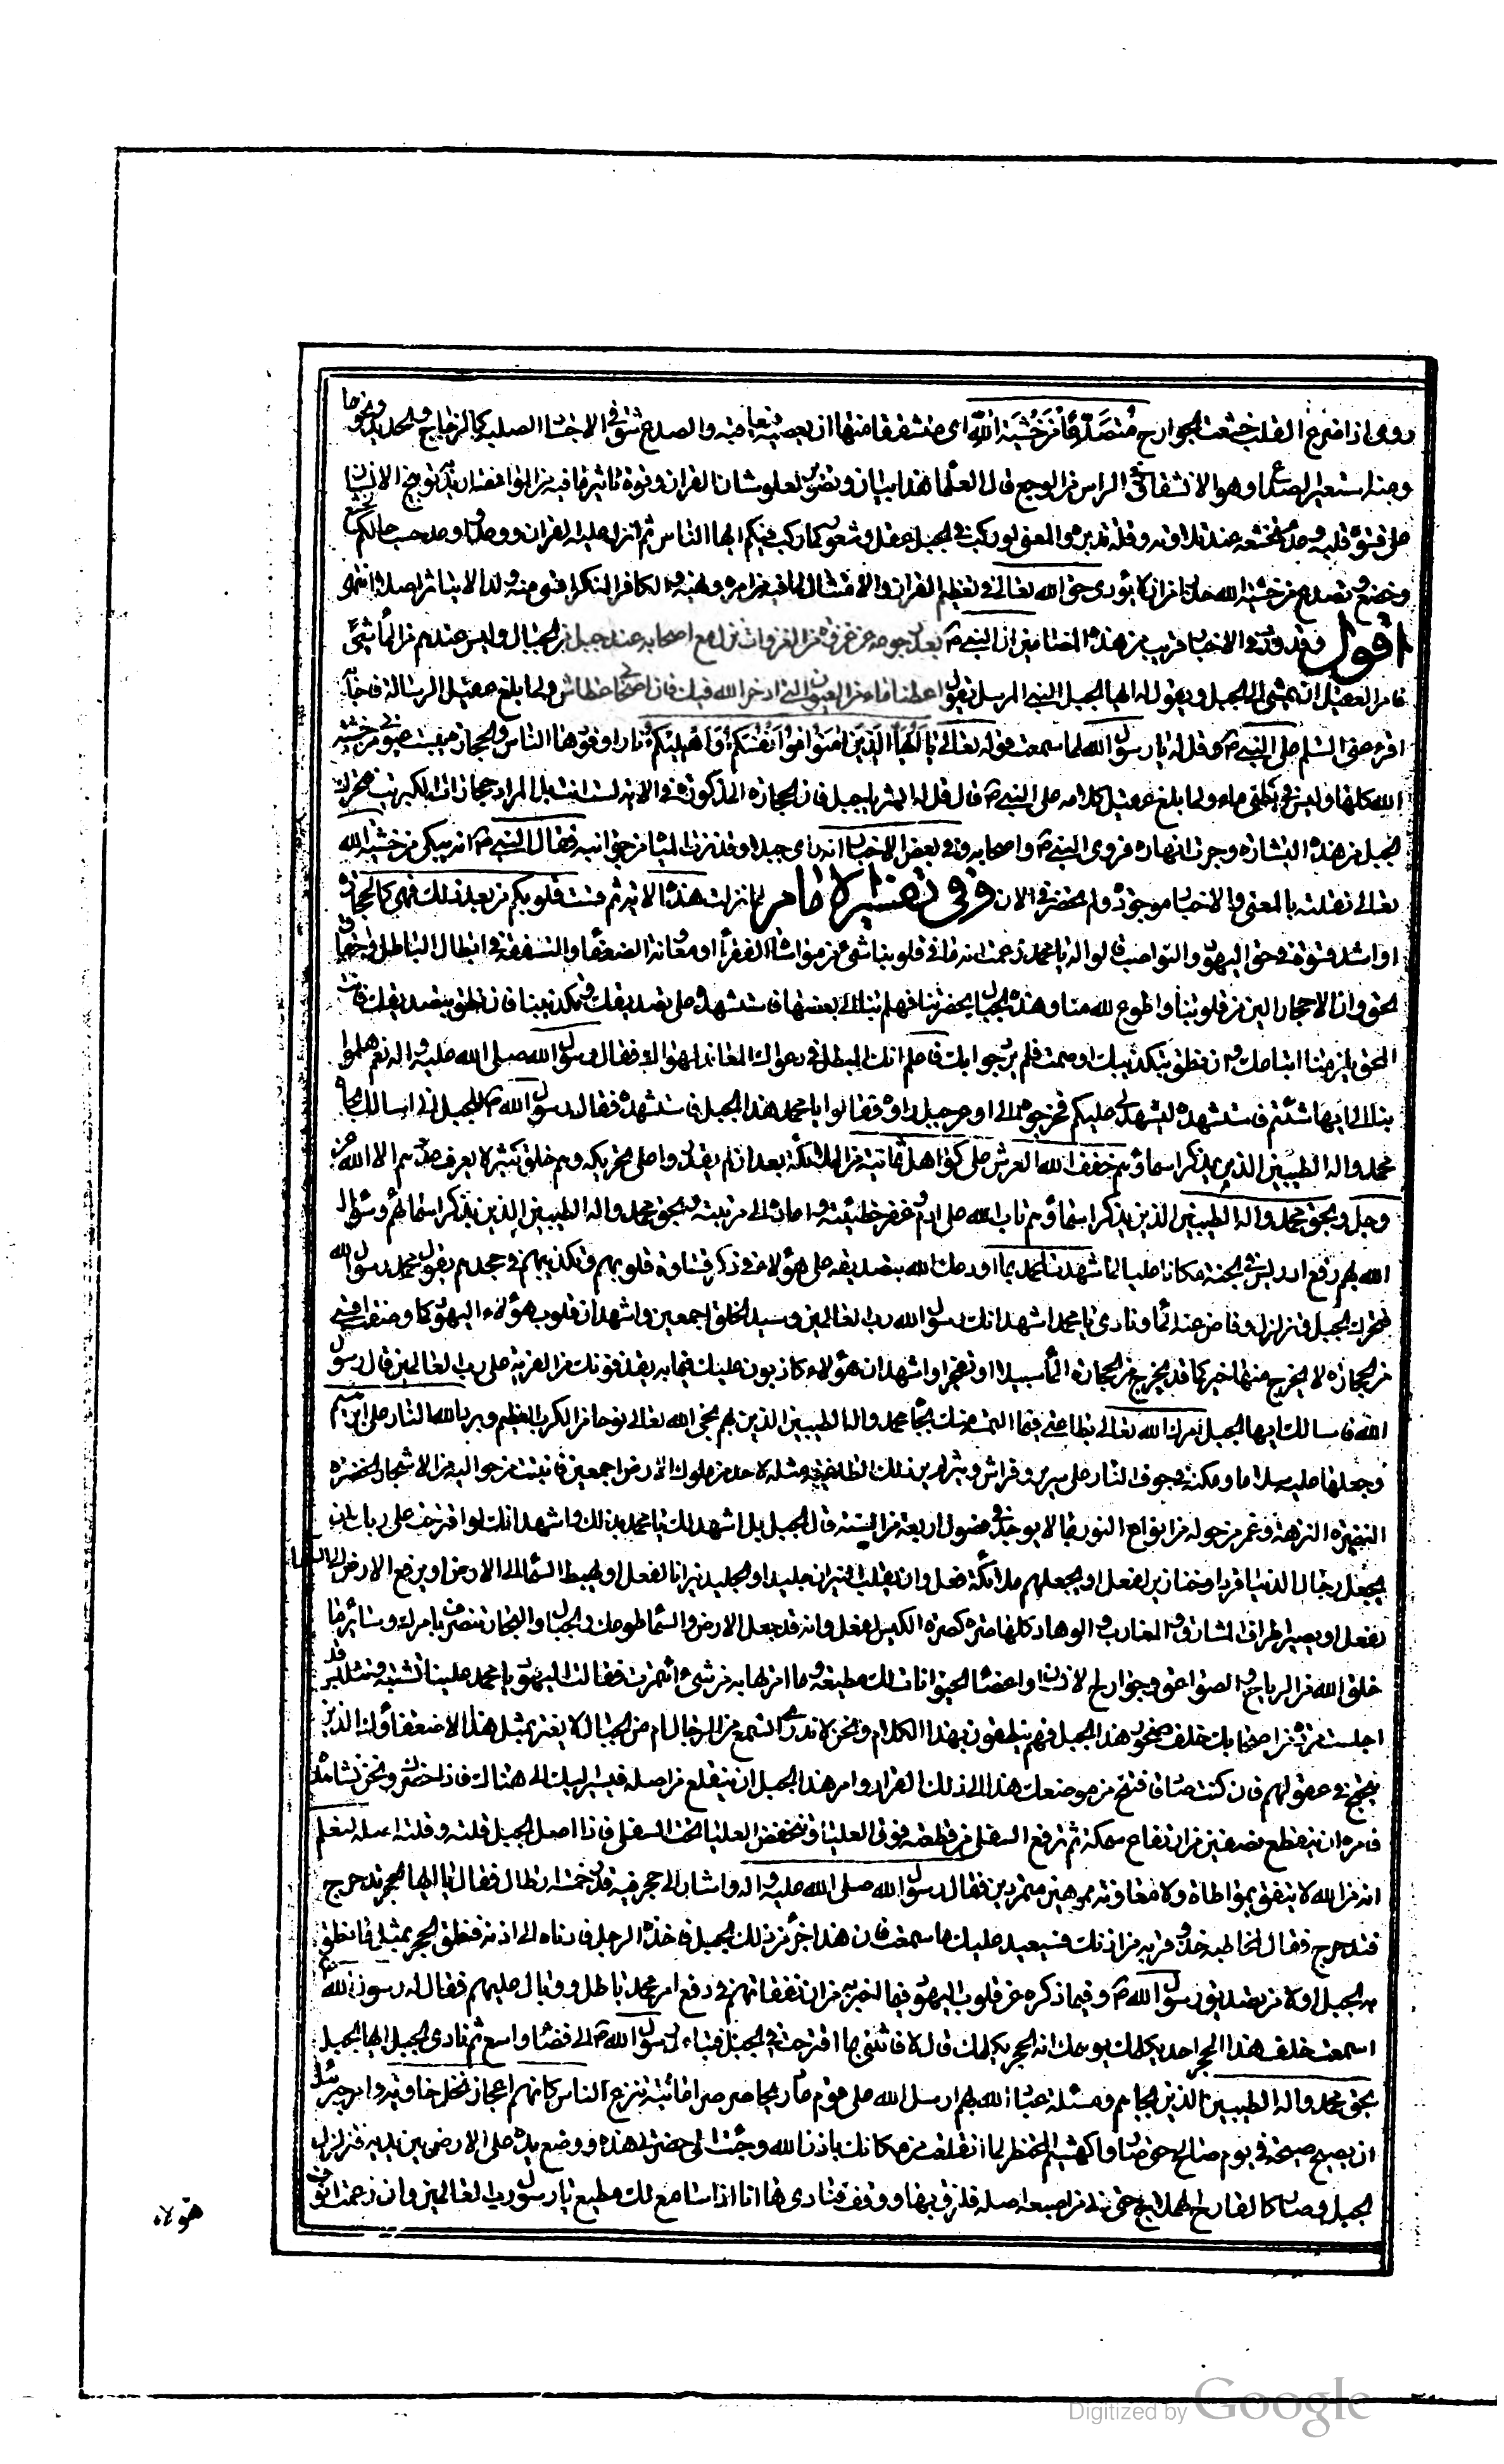 روى اذا ضرع القلب خشعت الجوارح مُتَصَدِّعًا مِنْ خَشْيَةِ اللهِ اى متشققا منها ان يعصيه فيعاقبه والصدع شق فى الاجسام الصلبة كالزجاج والحديد ونحوها
ومنه استعير الصداع وهو الانشقاق فى الراس من الوجع قال العلماء هذا بيان وتصوير لعلو شان القران وقوة تاثير ما فيه من المواعظ توبيخ الانسان
على قسوة قلبه وعدم تخشعه عند تلاوته وقلة تدبره والمعنى لو ركب فى الجبل عقل وشعور كما ركب فيكم ايها الناس ثم انزل عليه القران ووعد واوعد حسب حالكم لخشع
وخضع وتصدع من خشية الله حذرا من ان لا يؤدى حق الله تعالى فى تعظيم القران والامتثال لما فيه من امره ونهيه والكافر المنكر اقسى منه ولذا لا يتاثر اصلا انتهى
اقول وقد ورد فى الاخبار قريب من هذه المضامين ان النبى ص بعد رجوعه عن غزوة من الغزوات نزل مع اصحابه عند جبل من الجبال وليس عندهم من الماء شئ
فامر العقيل ان يمشى الى الجبل ويقول له ايها الجبل النبى المرسل يقول اعطنا ماء من العيون التى ادخر الله فيك فان اصحابى عطاش ولما بلغ عقيل الرسالة فاجابه
اقرء منى السلم على النبى ص وقل له يا رسول الله لما سمعت قوله تعالى يَا اَيُّهَا الَّذِينَ امَنُوا قُوا اَنْفُسَكُمْ وَاَهْلِيكُمْ نَارًا وقودها الناس والحجارة فبكيت عيونى من خشية
الله كلها وليس فى بطنى ماء ولما بلغ عقيل كلامه على النبى ص قال قل له ابشر يا جبل فان الحجارة المذكورة فى الاية لست انت بل المراد حجارات الكبريت فتحرك
الجبل من هذه البشارة وجرت انهاره فروى النبى ص واصحابه وفى بعض الاخبار انه راى جبلا وقد نزلت المياه من جوانبه فقال النبى ص انه يبكى من خشية الله
تعالى نقلته بالمعنى والاخبار موجودة ولم يحضرنى الان وفى تفسير الامام لما نزلت هذه الاية ثم قست قلوبكم من بعد ذلك فهى كالحجارة
او اشد قسوة فى حق اليهود والنواصب قالوا له يا محمد زعمت انه ما فى قلوبنا شئ من مواساة الفقراء ومعاونة الضعفاء والنفقة فى ابطال الباطل واحقاق
الحق وان الاحجار الين من قلوبنا واطوع لله منا وهذه الجبال بحضرتنا فهلم بنا الى بعضها فاستشهده على تصديقك وتكذيبنا فان نطق بتصديقك فانت
المحق يلزمنا اتباعك وان نطق بتكذيبك او صمت فلم يرد جوابك فاعلم انك المبطل فى دعواك المعاند لهواك فقال رسول الله صلى الله عليه واله نعم هلموا
بنا الى ايها شئتم فاستشهده ليشهد لى عليكم فخرجوا الى اوعر جبل راوه فقالوا يا محمد هذا الجبل فاستشهده فقال رسول الله ص للجبل انى اسالك بجاه
محمد واله الطيبين الذين بذكر اسمائهم خفف الله العرش على كواهل ثمانية من الملائكة بعد ان لم يقدروا على تحريكه وهم خلق كثير لا يعرف عددهم الا الله عز
وجل وبحق محمد واله الطيبين الذين بذكر اسمائهم تاب الله على ادم وغفر خطيئته واعاده الى مرتبته وبحق محمد واله الطيبين الذين بذكر اسمائهم وسؤال
الله بهم رفع ادريس فى الجنة مكانا عليا لما شهدت لمحمد بما اودعك الله بتصديقه على هؤلاء فى ذكر قساوة قلوبهم وتكذيبهم فى جحدهم لقول محمد رسول الله
فتحرك الجبل فتزلزل وفاض عنه الماء ونادى يا محمد اشهد انك رسول الله رب العالمين وسيد الخلق اجمعين واشهد ان قلوب هؤلاء اليهود كما وصفت اقسى
من الحجارة لا يخرج منها خير كما قد يخرج من الحجارة الماء سيلا او تفجرا واشهد ان هؤلاء كاذبون عليك فيما به يقذفونك من الفرية على رب العالمين قال رسول
الله فاسالك ايها الجبل امرك الله تعالى بطاعتى فيما التمسه منك بجاه محمد واله الطيبين الذين بهم نجى الله تعالى نوحا من الكرب العظيم وبرد الله النار على ابرهيم
وجعلها عليه سلاما ومكنه فى جوف النار على سرير وفراش وثير لم ير ذلك الطاغية مثله لاحد من ملوك الارض اجمعين فانبتت من حواليه من الاشجار الخضرة
النضرة النزهة وغمر من حوله من انواع النور بما لا يوجد الا فى فصول اربعة من السنة قال الجبل بل اشهد لك يا محمد بذلك واشهد انك لو اقترحت على ربك ان
يجعل رجال الدنيا قردا وخنازير لفعل او يجعلهم ملائكة فعل وان يقلب النيران جليدا والجليد نيرانا لفعل او يهبط السماء الى الارض او يرفع الارض الى السماء
لفعل او يصير اطراف المشارق والمغارب والوهاد كلها صرة كصرة الكيس لفعل وانه قد جعل الارض والسماء طوعك والجبال والبحار تنصرف بامرك وسائر ما
خلق الله من الرياح والصواعق وجوارح الانسان واعضاء الحيوانات لك مطيعة وما امرتها به من شئ ائتمرت فقالت اليهود يا محمد علينا تشتبه وتلبس قد
اجلست مردة من اصحابك خلف صخور هذا الجبل فهم ينطقون بهذا الكلام ونحن لا ندرى انسمع من الرجال ام من الجبال لا يغتر بمثل هذا الا ضعفاؤك الذين
تبحبح فى عقولهم فان كنت صادقا فتنح من موضعك هذا الى ذلك القرار وامر هذا الجبل ان ينقلع من اصله فيسير اليك الى هناك فاذا حضرك ونحن نشاهده
فامره ان ينقطع نصفين من ارتفاع سمكه ثم ترفع السفلى من قطعته فوق العليا وتنخفض العليا تحت السفلى فاذا اصل الجبل قلته وقلته اصله لنعلم
انه من الله لا يتفق بمواطاة ولا معاونة مموهين متمردين فقال رسول الله صلى الله عليه واله واشار الى حجر فيه قدر خمسة ارطال فقال يا ايها الحجر تدحرج
فتدحرج فقال لمخاطبه خذه وقربه من اذنك فسيعيد عليك ما سمعت فان هذا جزء من ذلك الجبل فاخذه الرجل فادناه الى اذنه فنطق الحجر بمثل ما نطق
به الجبل اولا من تصديق رسول الله ص وفيما ذكره عن قلوب اليهود فيما اخبر به من ان نفقاتهم فى دفع امر محمد باطل ووبال عليهم فقال له رسول الله
اسمعت خلف هذا الحجر احد يكلمك يوهمك انه الحجر يكلمك قال لا فائتنى بما اقترحت فى الجبل فتباعد رسول الله ص الى فضاء واسع ثم نادى الجبل ايها الجبل
بحق محمد واله الطيبين الذين بجاههم ومسئلة عباد الله بهم ارسل الله على قوم عاد ريحا صرصرا عاتية تنزع الناس كانهم اعجاز نخل خاوية وامر جبرئيل
ان يصيح صيحة فى يوم صالح حتى صاروا كهشيم المحتظر لما انقلعت من مكانك باذن الله وجئت الى حضرتى هذه ووضع يده على الارض بين يديه فتزلزل
الجبل وصار كالقارح الهملاج حتى دنى من اصبعه اصله فلزق بها ووقف فنادى ها انا اذا سامع لك مطيع يا رسول رب العالمين وان رغمت انوف
هؤلاء
Digitized by Google